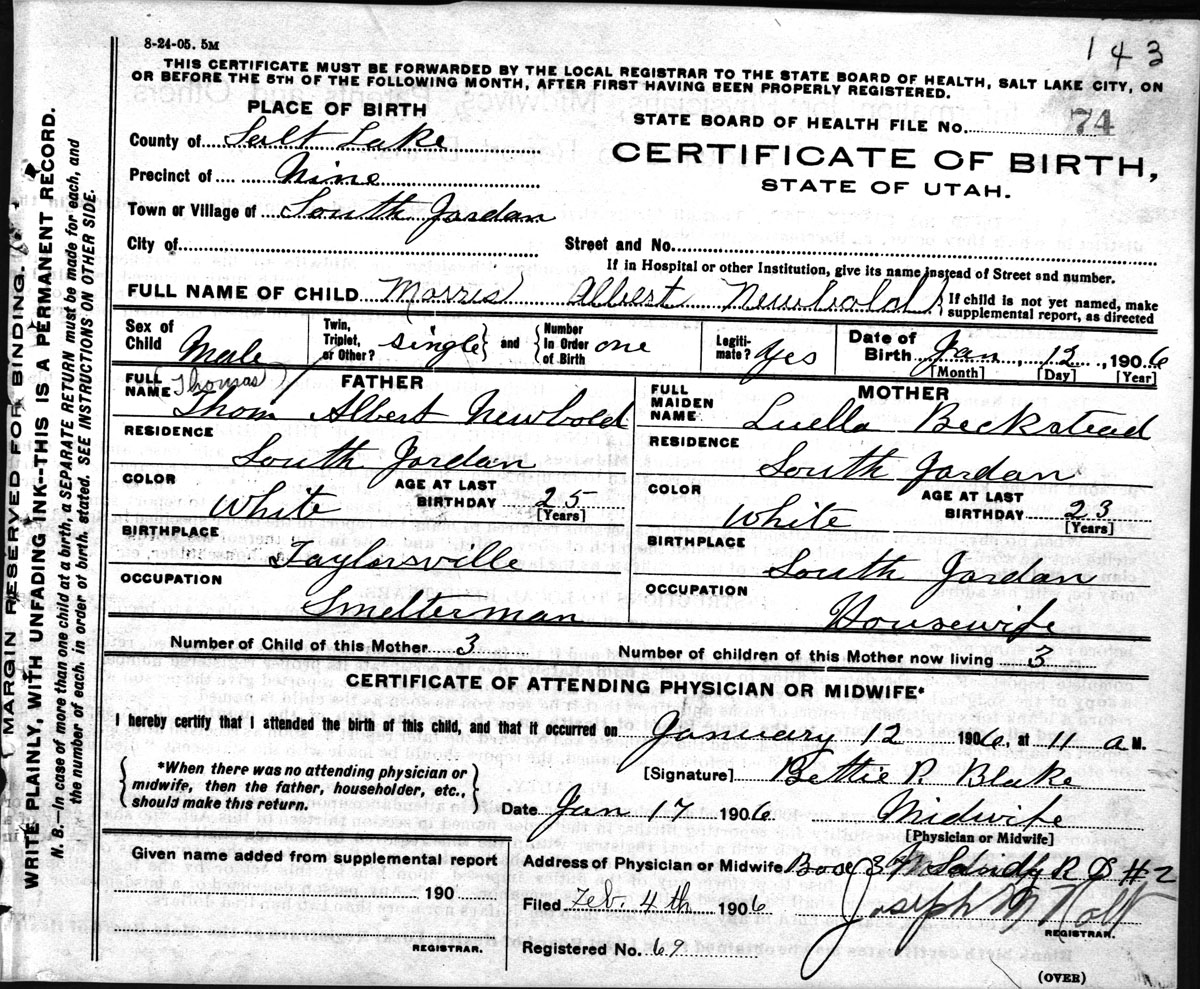 8-24-05. 5M
143
THIS CERTIFICATE MUST BE FORWARDED BY THE LOCAL REGISTRAR TO THE STATE BOARD OF HEALTH, SALT LAKE CITY, ON
OR BEFORE THE 5TH OF THE FOLLOWING MONTH, AFTER FIRST HAVING BEEN PROPERLY REGISTERED.
PLACE OF BIRTH
STATE BOARD OF HEALTH FILE No. 74
County of Salt Lake
CERTIFICATE OF BIRTH,
Precinct of Nine
STATE OF UTAH.
Town or Village of South Jordan
City of
Street and No.
If in Hospital or other Institution, give its name instead of Street and number.
FULL NAME OF CHILD Morris Albert Newbold } If child is not yet named, make supplemental report, as directed
Sex of Child Male
Twin, Triplet, or Other? single } and { Number In Order of Birth one
Legitimate? Yes
Date of Birth Jan, 12, 1906
[Month] [Day] [Year]
FATHER
FULL NAME (Thomas) Thom Albert Newbold
RESIDENCE
South Jordan
COLOR White
AGE AT LAST BIRTHDAY 25
[Years]
BIRTHPLACE
Taylorsville
OCCUPATION
Smelterman
MOTHER
FULL MAIDEN NAME Luella Beckstead
RESIDENCE
South Jordan
COLOR White
AGE AT LAST BIRTHDAY 23
[Years]
BIRTHPLACE
South Jordan
OCCUPATION
Housewife
Number of Child of this Mother 3
Number of children of this Mother now living 3
CERTIFICATE OF ATTENDING PHYSICIAN OR MIDWIFE*
I hereby certify that I attended the birth of this child, and that it occurred on January 12 1906, at 11 a M.
{ *When there was no attending physician or midwife, then the father, householder, etc., should make this return. }
[Signature] Bettie P. Blake
Date Jan 17 1906
Midwife
[Physician or Midwife]
Given name added from supplemental report
190
REGISTRAR.
Address of Physician or Midwife Box Sandy R D #2
Filed Feb. 4th 1906
Joseph M Holt
REGISTRAR.
Registered No. 69
(OVER)
( MARGIN RESERVED FOR BINDING. )
WRITE PLAINLY, WITH UNFADING INK--THIS IS A PERMANENT RECORD.
N. B.—In case of more than one child at a birth, a SEPARATE RETURN must be made for each, and
the number of each, in order of birth, stated. SEE INSTRUCTIONS ON OTHER SIDE.